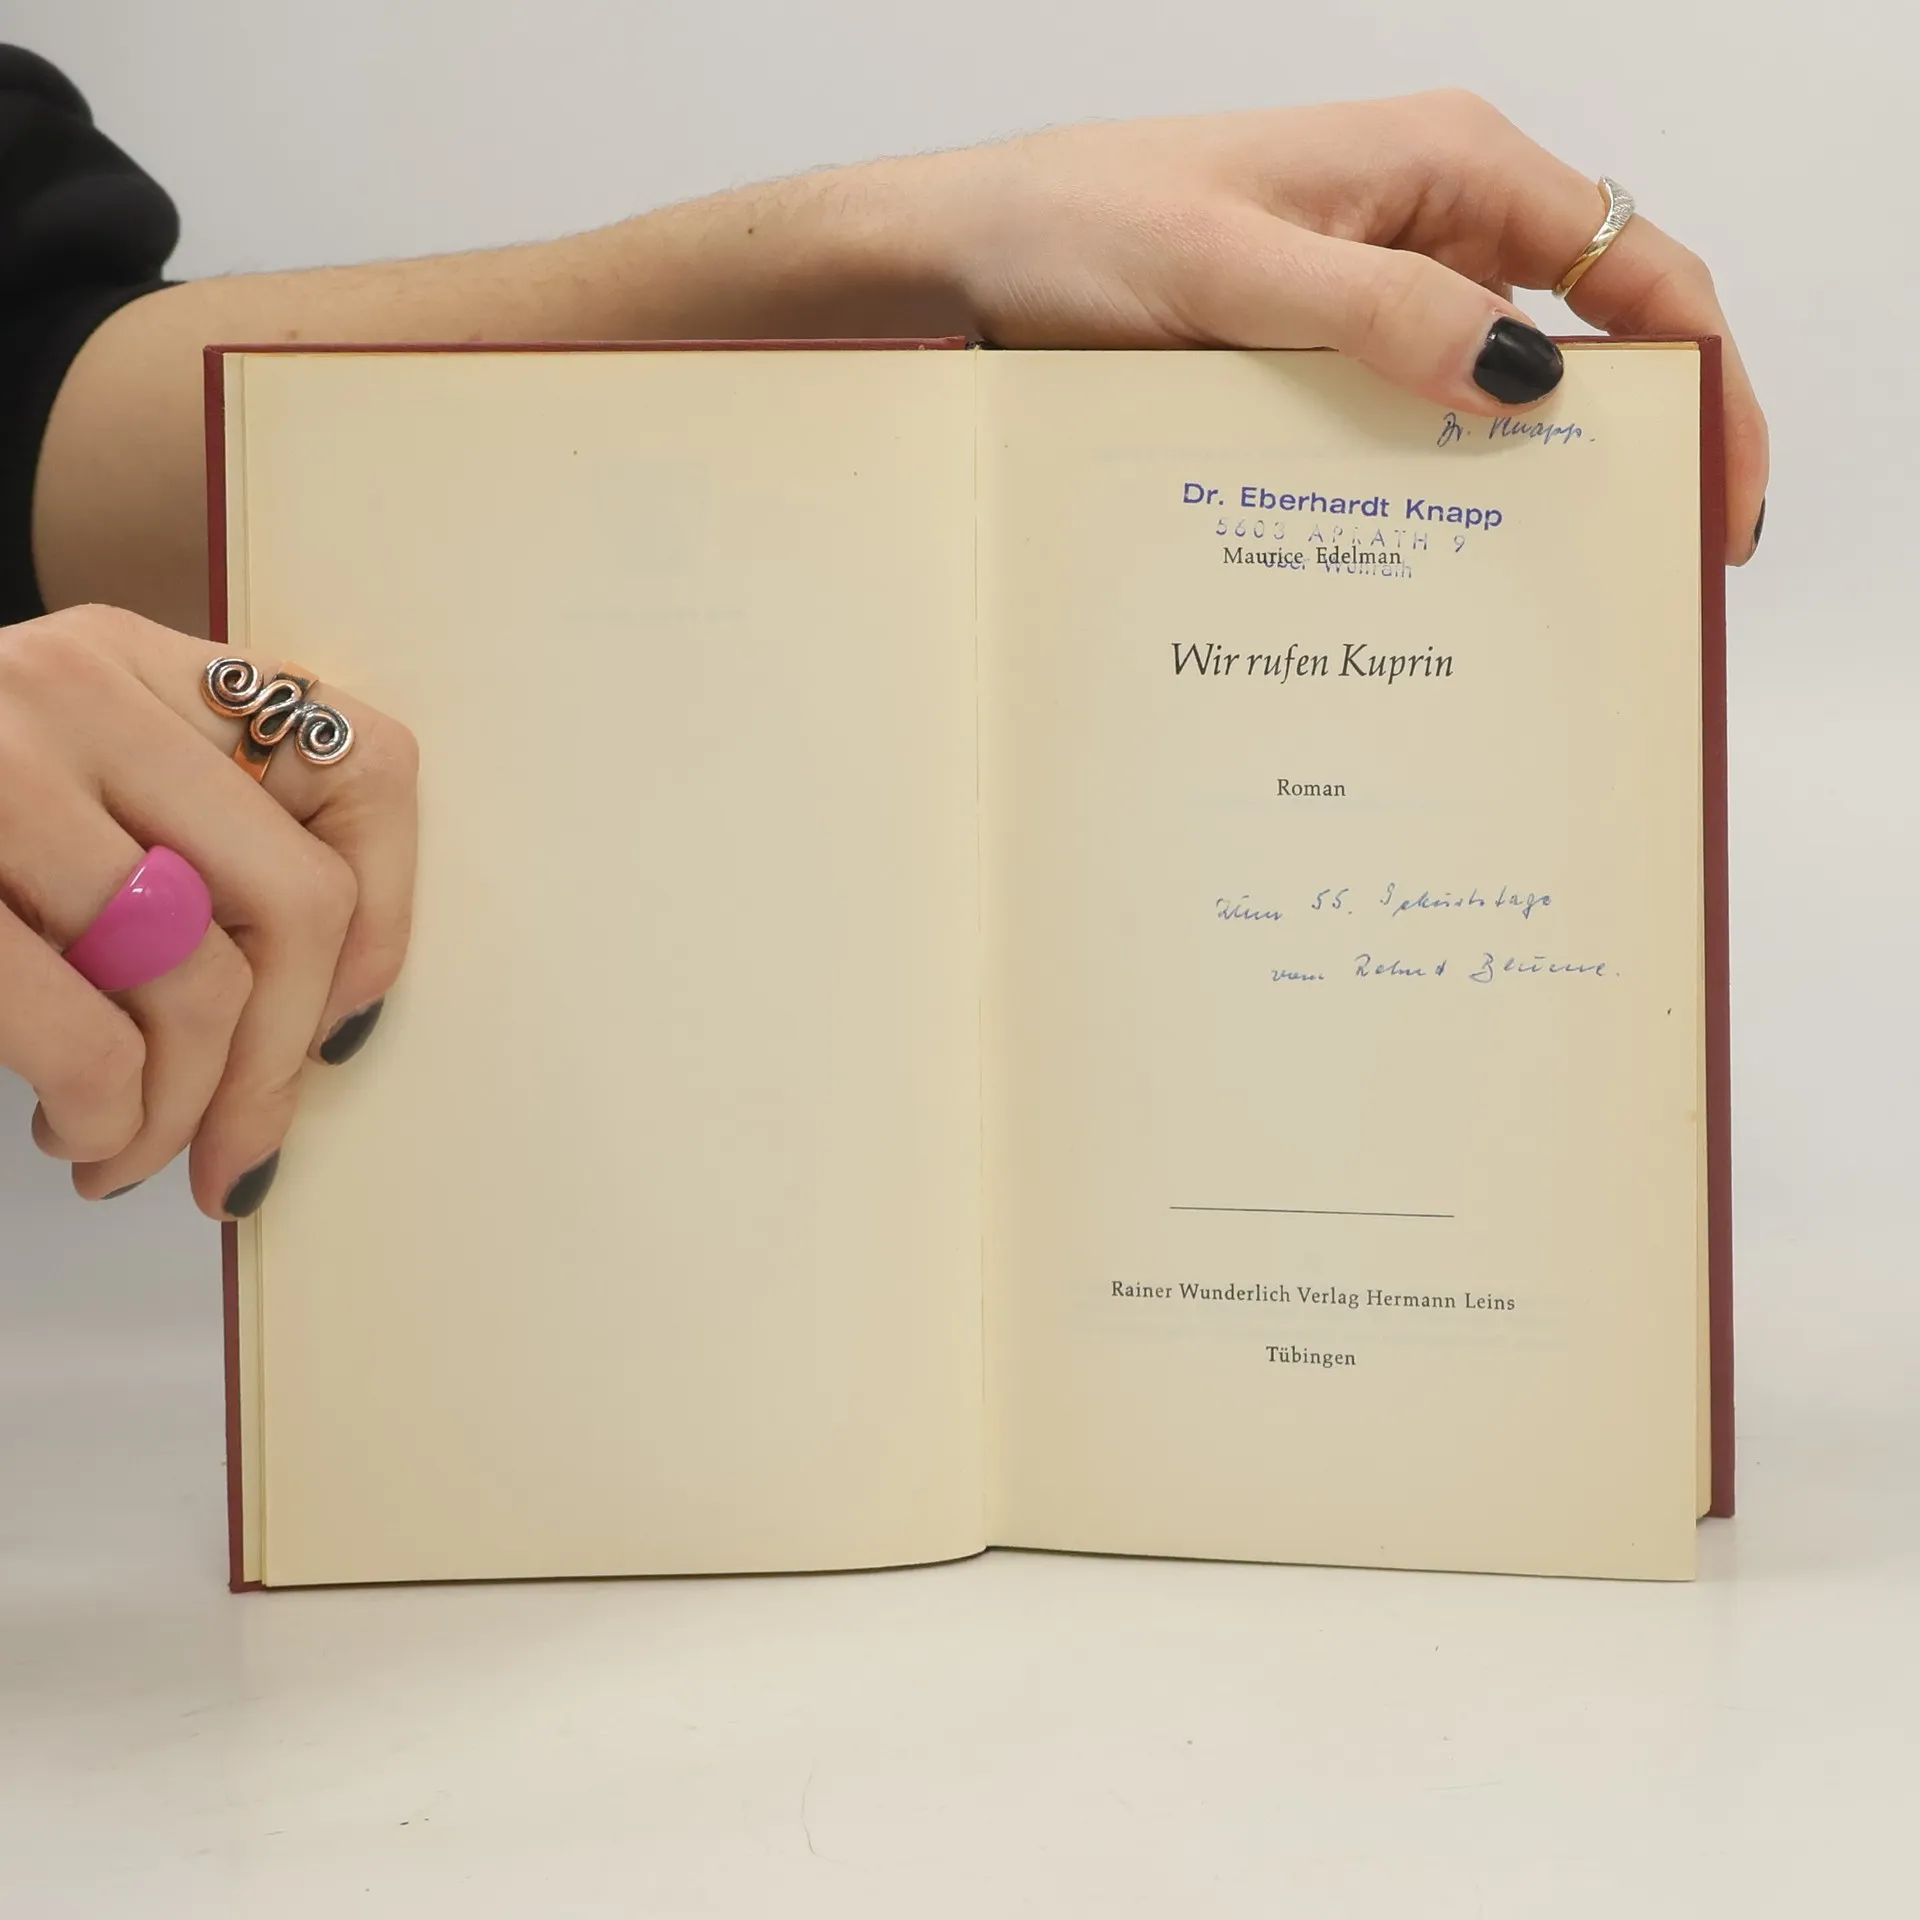 Dr. Knapp.
Dr. Eberhardt Knapp
5603 APRATH 9
Maurice Edelman
über Wülfrath
Wir rufen Kuprin
Roman
Zum 55. Geburtstage
vom
Rainer Wunderlich Verlag Hermann Leins
Tübingen